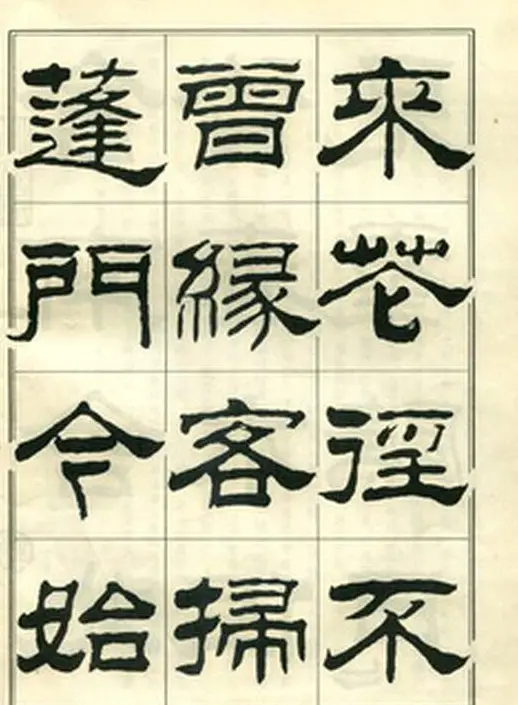 來花徑不
曾緣客掃
蓬門今始